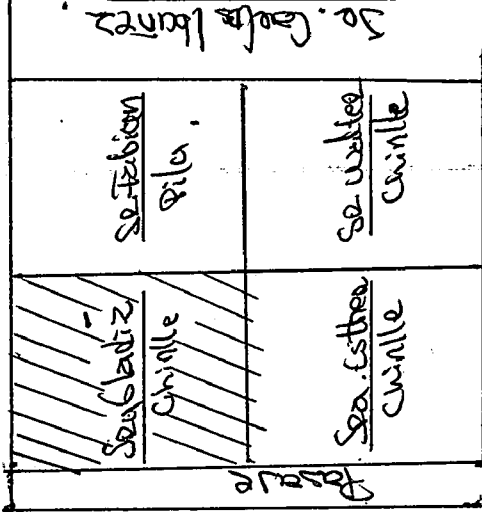 Sr. Carlos Ibañez
Sr. Fabian
Pila
Sr Walter
Chinlle
Sra Gladiz
Chinlle
Sra. Esther
Chinlle
Pasaje